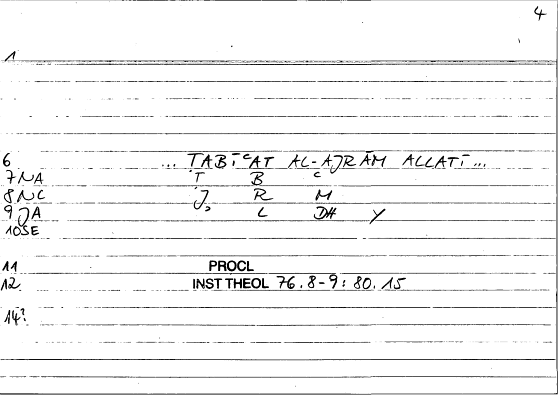 4
1
6 ... ṬABĪʿAT AL-AJRĀM ALLATĪ ...
7 NA Ṭ B ʿ
8 NC J R M
9 JA L DH Y
10 SE
11 PROCL
12 INST THEOL 76.8-9: 80.15
14?